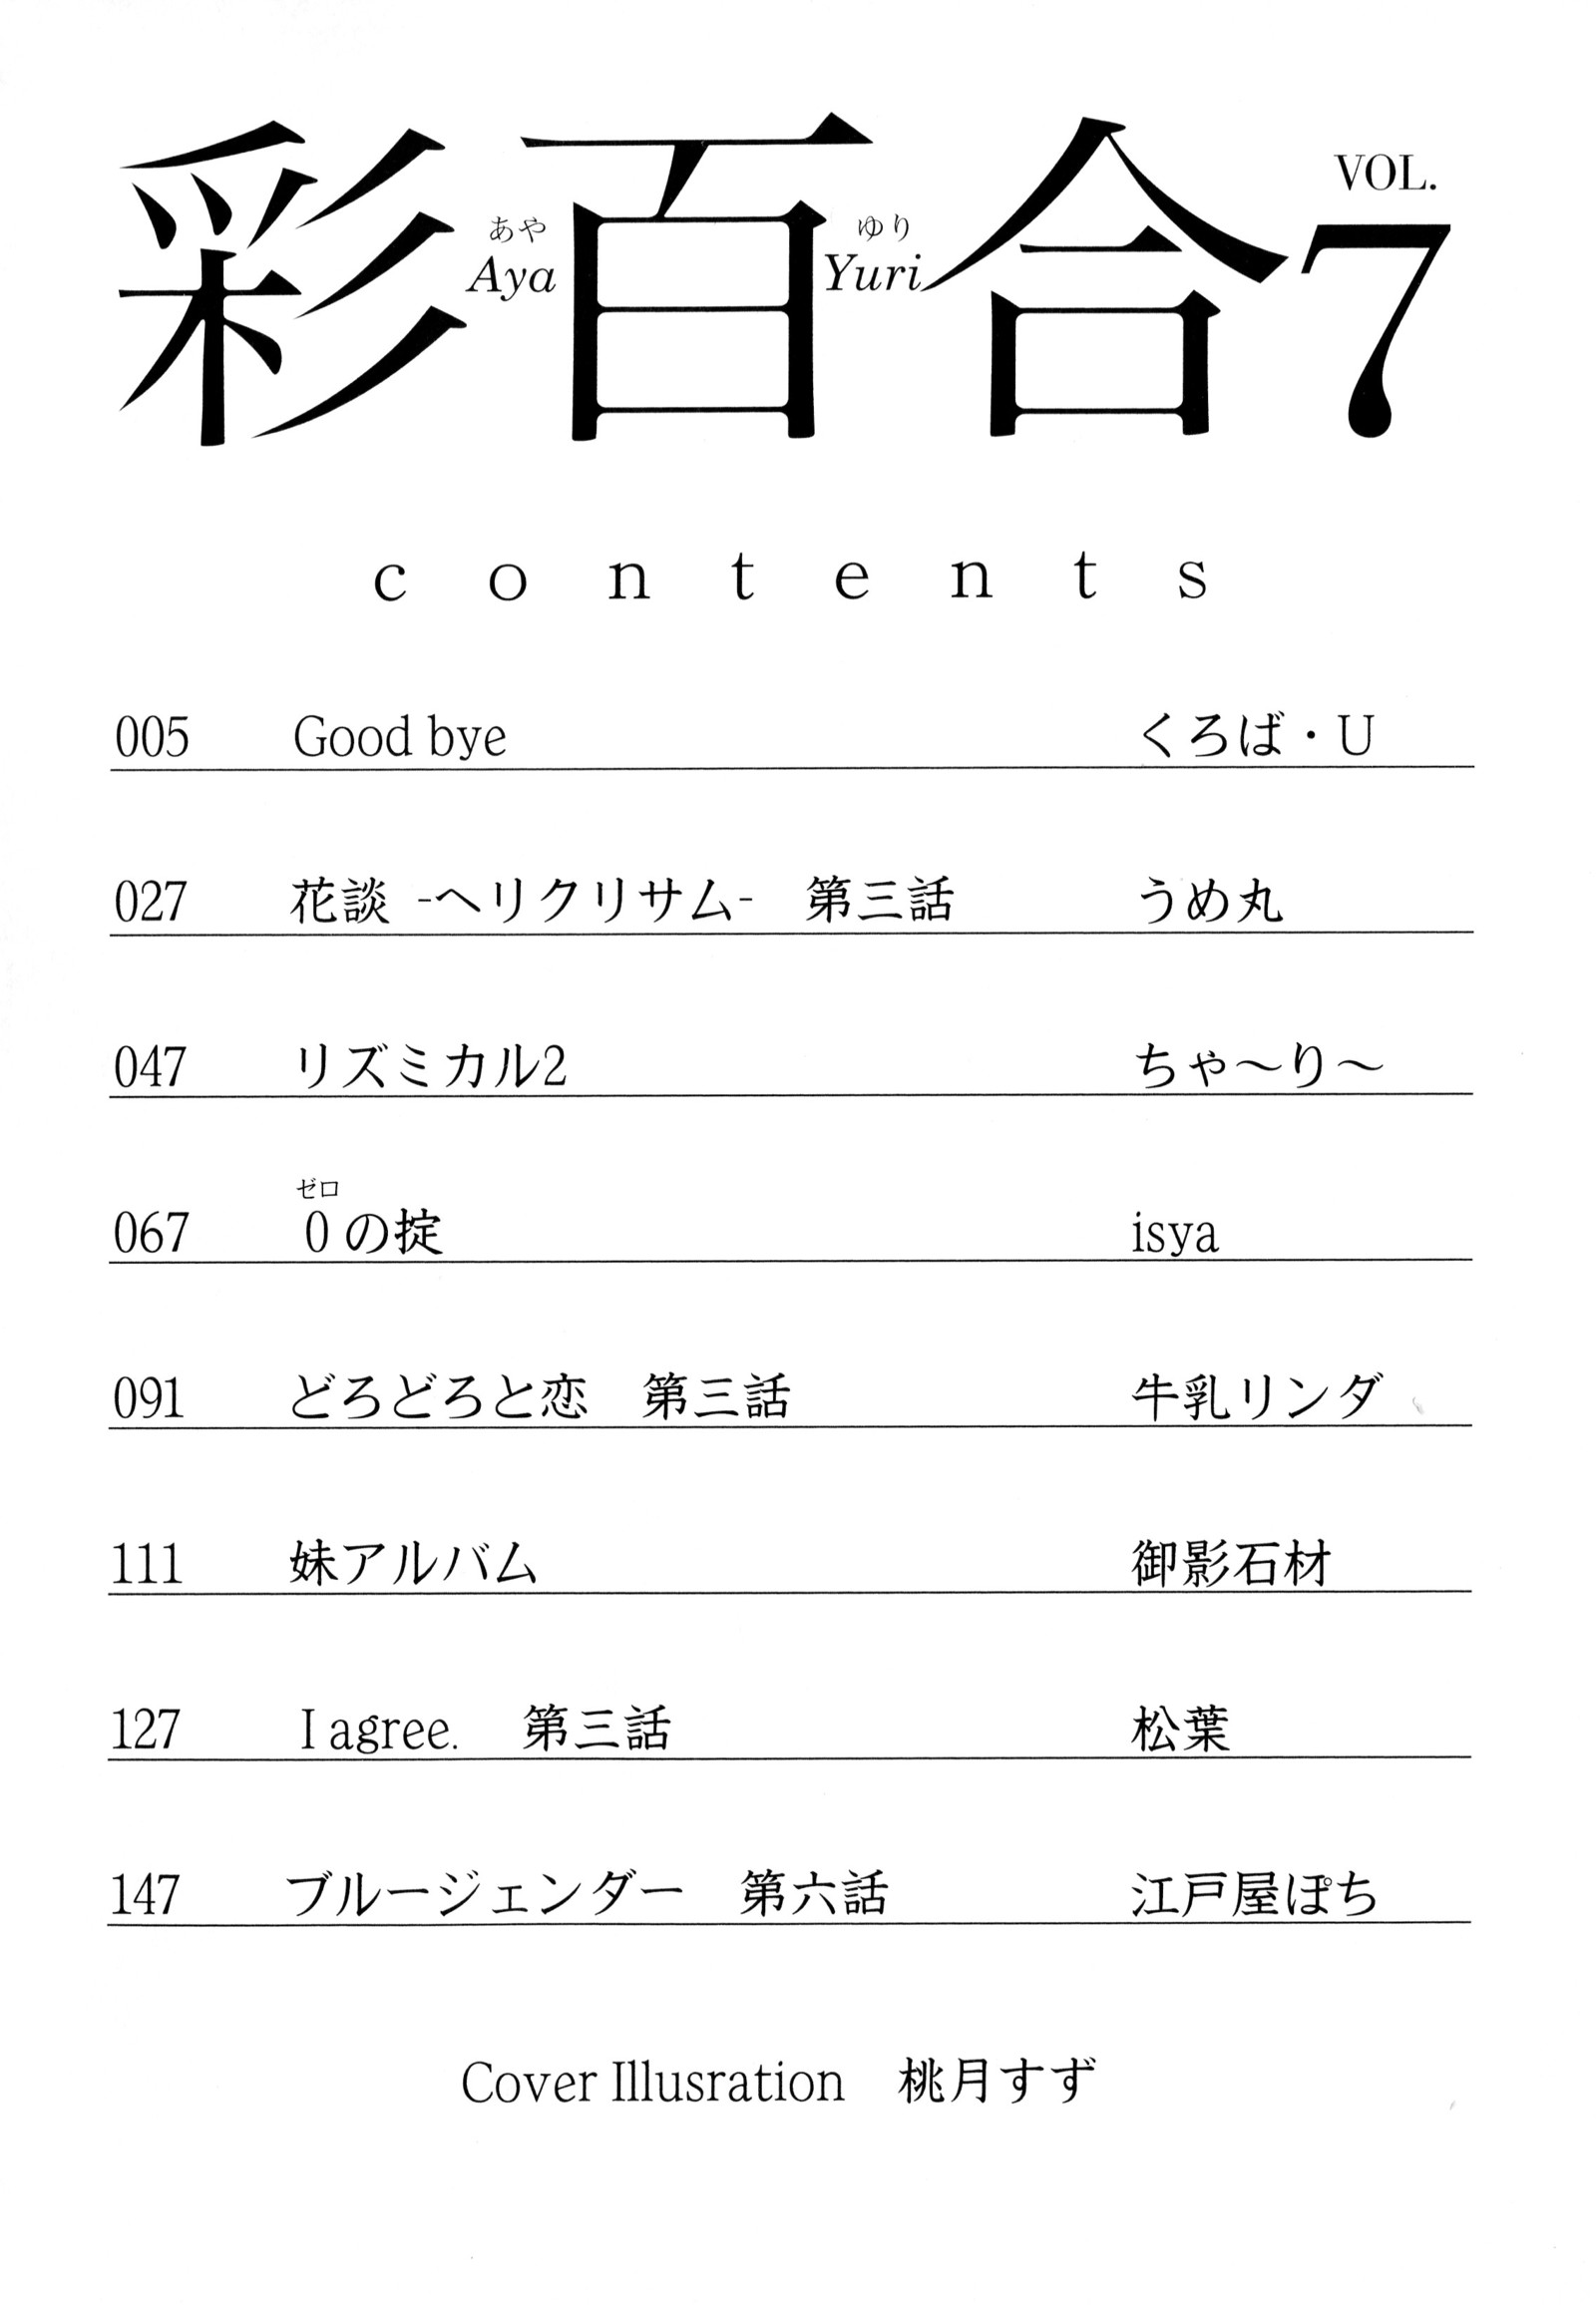 彩百合
あや
Aya
ゆり
Yuri
VOL.
7
contents
005 Good bye くろば・U
027 花談 -ヘリクリサム- 第三話 うめ丸
047 リズミカル2 ちゃ〜り〜
ゼロ
067 0の掟 isya
091 どろどろと恋 第三話 牛乳リンダ
111 妹アルバム 御影石材
127 I agree. 第三話 松葉
147 ブルージェンダー 第六話 江戸屋ぽち
Cover Illusration 桃月すず